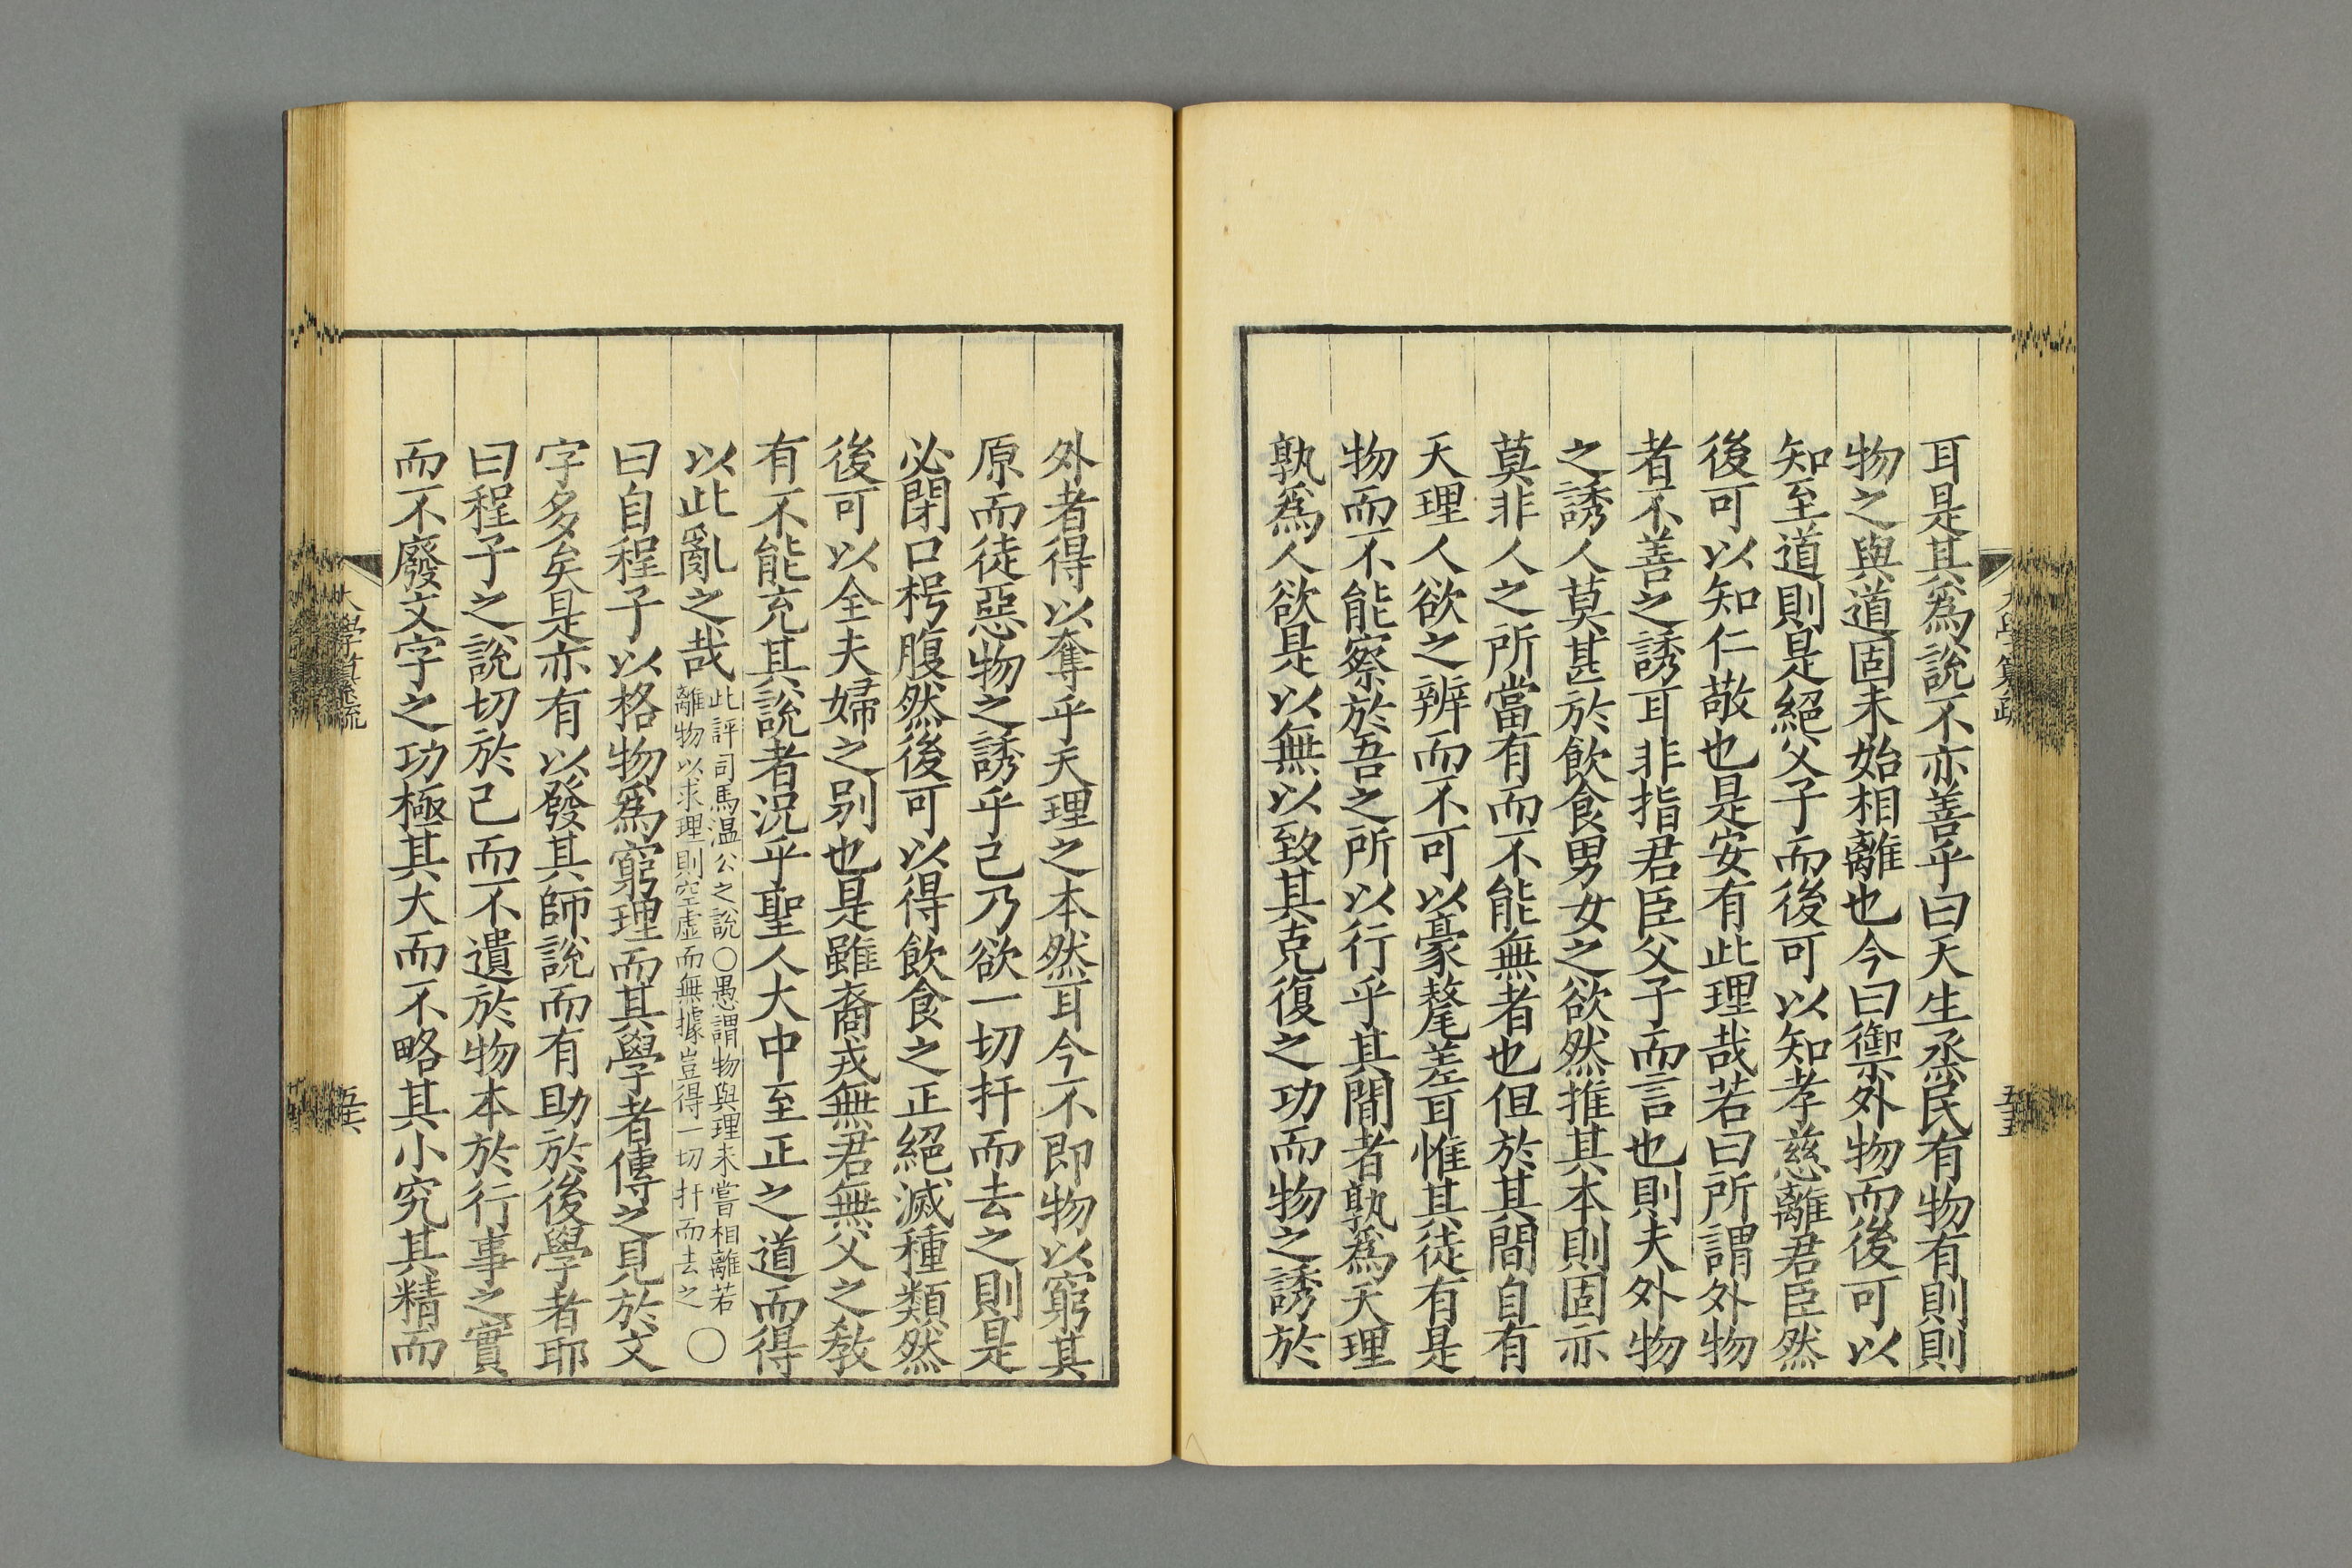 耳是其爲說不亦善乎曰天生烝民有物有則則
物之與道固未始相離也今曰禦外物而後可以
知至道則是絕父子而後可以知孝慈離君臣然
後可以知仁敬也是安有此理哉若曰所謂外物
者不善之誘耳非指君臣父子而言也則夫外物
之誘人莫甚於飲食男女之欲然推其本則固亦
莫非人之所當有而不能無者也但於其間自有
天理人欲之辨而不可以毫釐差耳惟其徒有是
物而不能察於吾之所以行乎其間者孰爲天理
孰爲人欲是以無以致其克復之功而物之誘於
外者得以奪乎天理之本然耳今不即物以窮其
原而徒惡物之誘乎己乃欲一切扞而去之則是
必閉口枵腹然後可以得飲食之正絕滅種類然
後可以全夫婦之别也是雖裔戎無君無父之敎
有不能充其說者況乎聖人大中至正之道而得
以此亂之哉
此評司馬温公之說○愚謂物與理未嘗相離若
離物以求理則空虛而無據豈得一切扞而去之
○
曰自程子以格物爲窮理而其學者傳之見於文
字多矣是亦有以發其師說而有助於後學者耶
曰程子之說切於己而不遺於物本於行事之實
而不廢文字之功極其大而不略其小究其精而